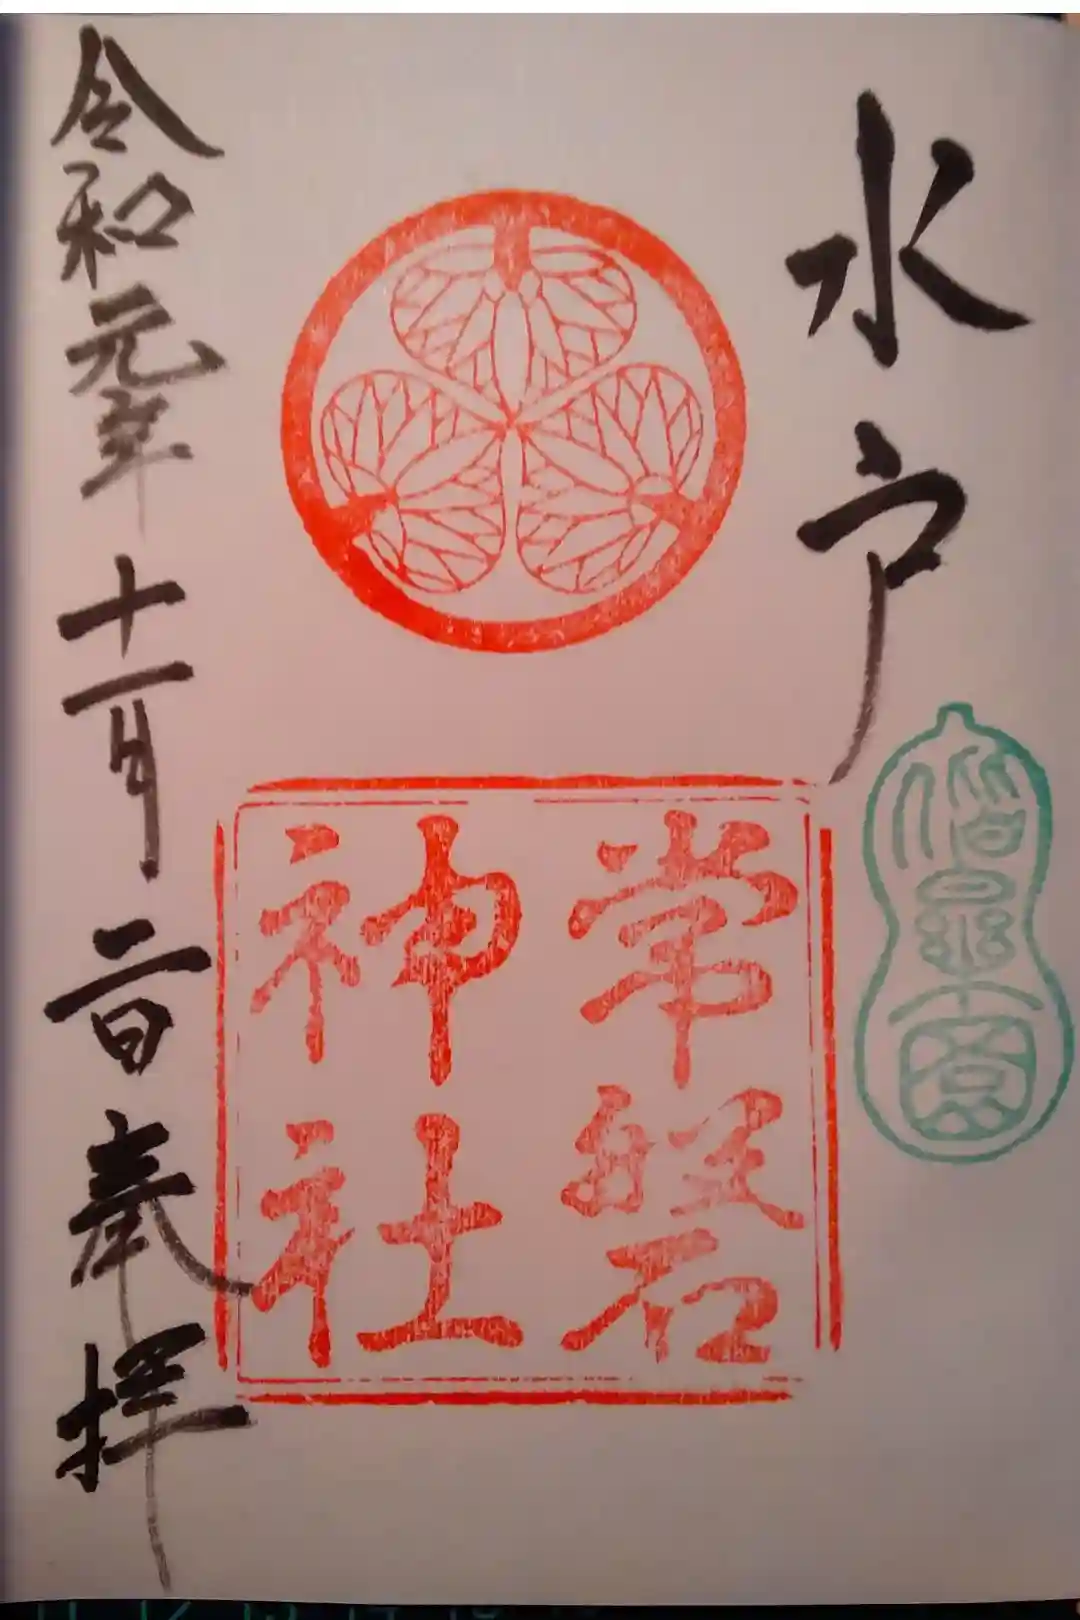 水戸
偕樂園
常磐
神社
令和元年十一月二日奉拝